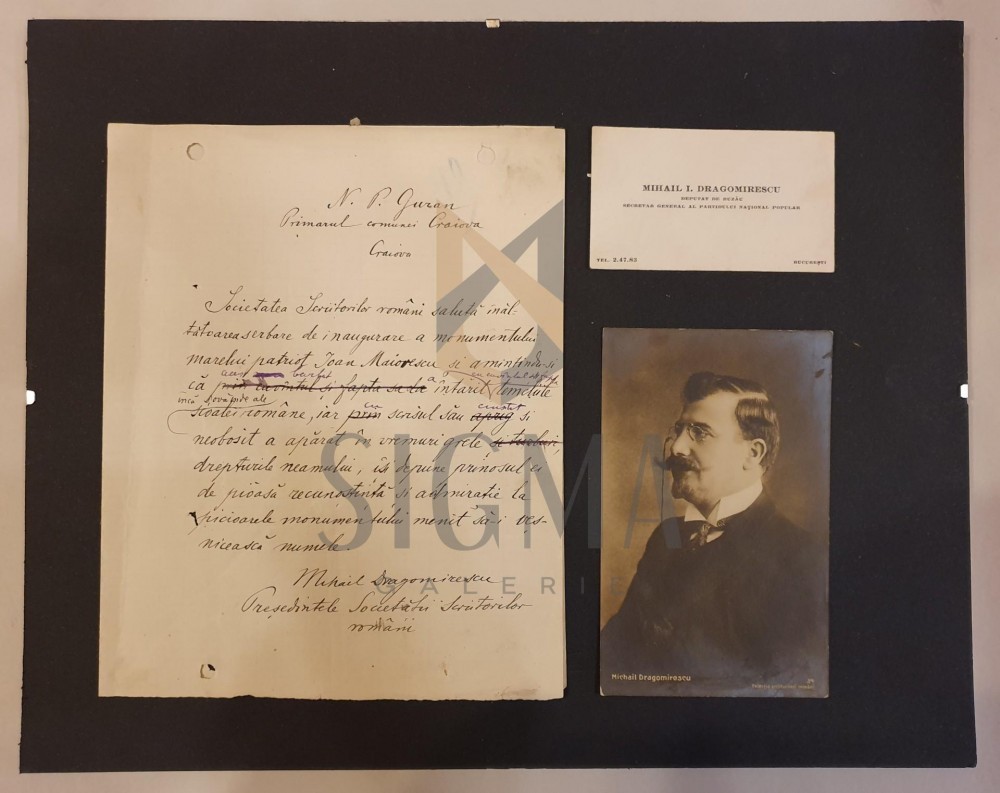 N. P. Guran
Primarul comunei Craiova
Craiova
Societatea Scriitorilor români salută înăl-
țătoarea serbare de inaugurare a monumentului
marelui patriot Ioan Maiorescu și amintindu-și
că prin cuvîntul și fapta sa a întărit temeliile
școalei române, iar prin scrisul său aprig și
neobosit a apărat în vremuri grele și tulburi,
drepturile neamului, își depune prinosul ei
de pioasă recunoștință și admirație la
picioarele monumentului menit să-i veș-
nicească numele.
Mihail Dragomirescu
Președintele Societății Scriitorilor
români
MIHAIL I. DRAGOMIRESCU
DEPUTAT DE BUZĂU
SECRETAR GENERAL AL PARTIDULUI NAȚIONAL POPULAR
TEL. 2.47.83
BUCUREȘTI
Michail Dragomirescu
SIGMA
GALERIE